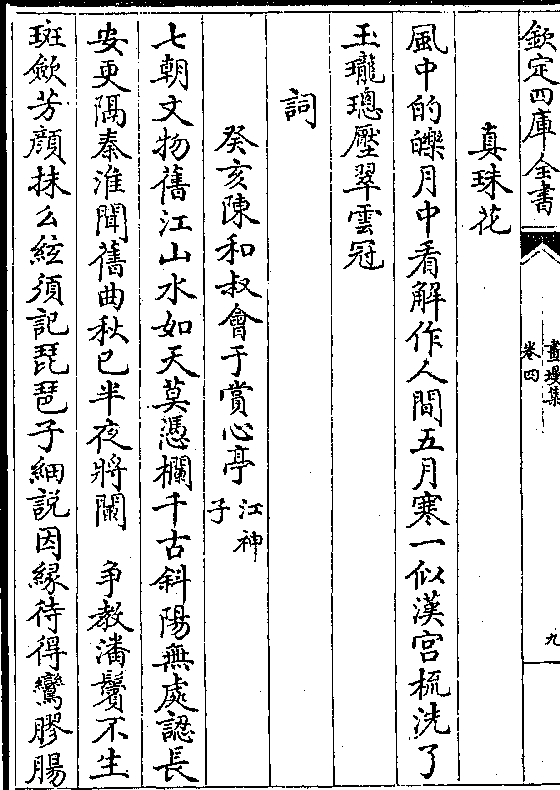 欽定四庫全書
畫墁集
卷四
九
真珠花
風中的皪月中看解作人間五月寒一似漢宮梳洗了
玉瓏璁壓翠雲冠
詞
癸亥陳和叔會于賞心亭
江神
子
七朝文物舊江山水如天莫憑欄千古斜陽無處認長
安更隔秦淮聞舊曲秋已半夜將闌　争教潘鬢不生
斑歛芳顔抹么絃須記琵琶子細説因縁待得鸞膠腸